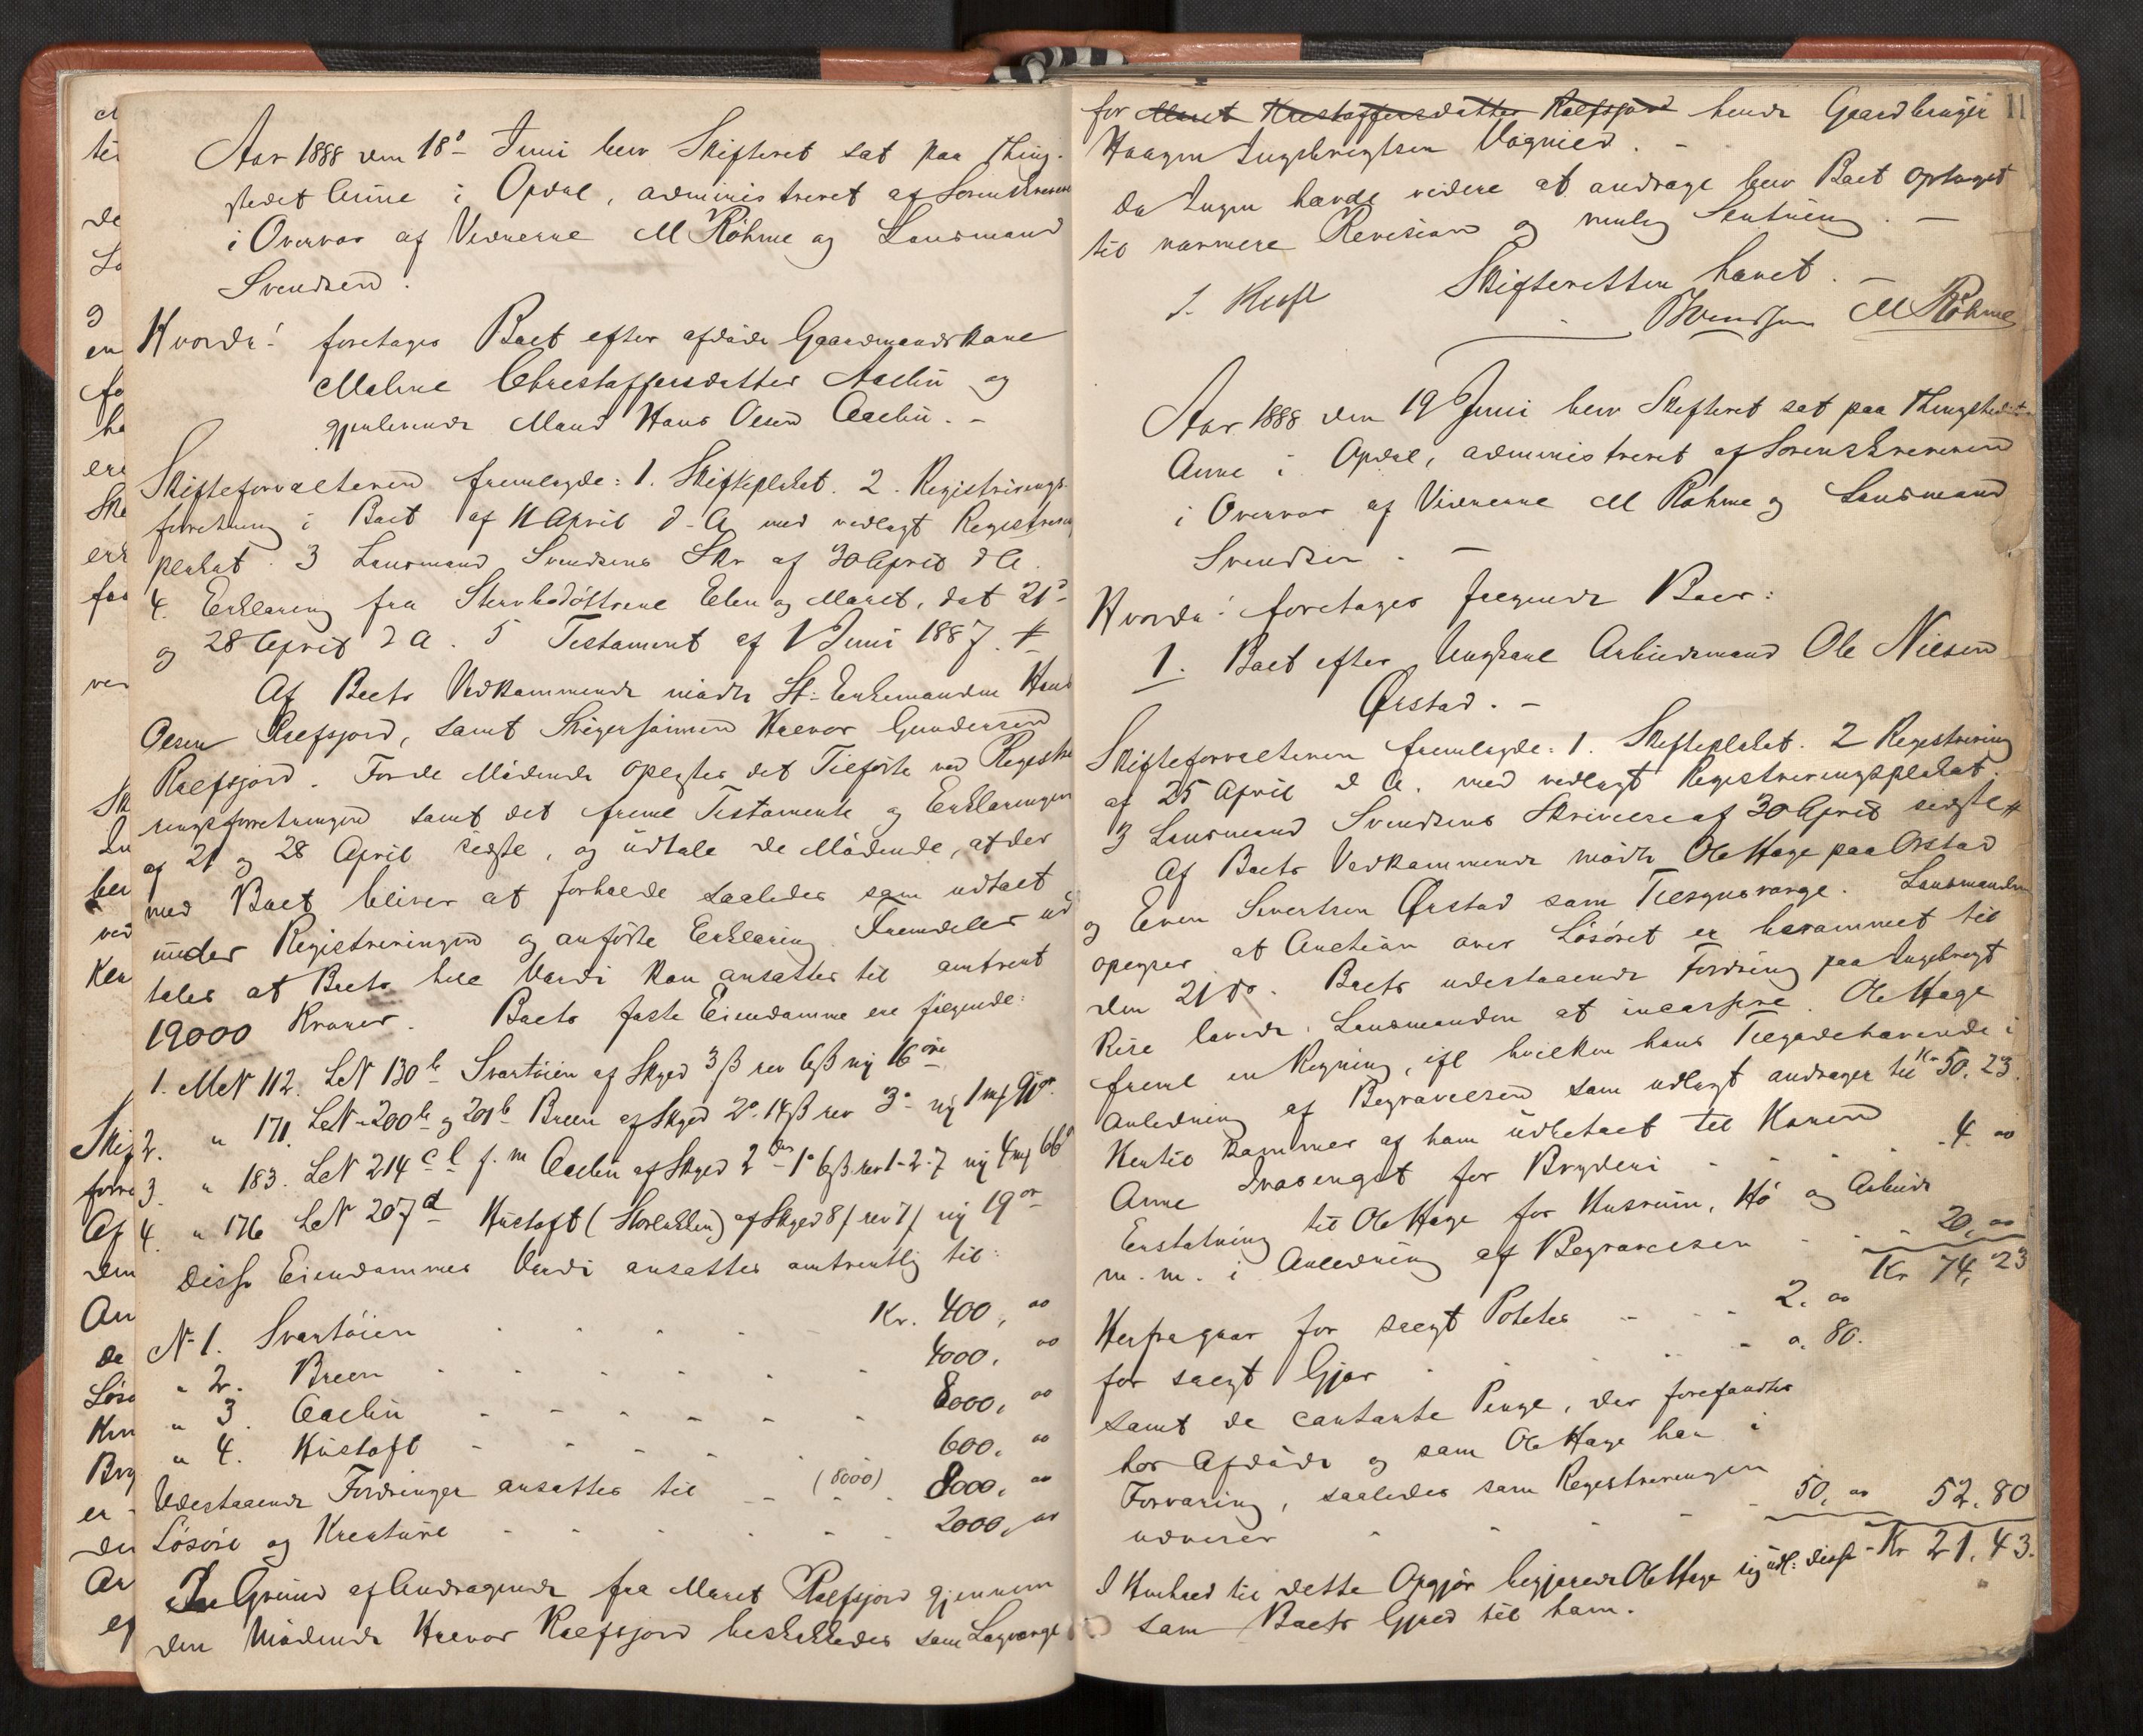 Aar 1888 den 18de Juni blev Skifteret sat paa Thing-
stedet Aune i Opdal, administreret af Sorenskriveren
i Overvær af Vidnerne M Röhme og Lensmand
Svendsen.
Hvorda! foretages Boet efter afdøde Gaardmandskone
Malene Christoffersdatter Aalbu og
gjenlevende Mand Hans Olsen Aalbu. -
Skifteforvalteren fremlagde: 1. Skifteplakat. 2. Registrerings-
forretning i Boet af 11 April d. A. med vedlagt Registrerings
plakat. 3 Lensmand Svendsens Skr af 30 April d A.
4. Erklæring fra Stervbodöttrene Elen og Maret, dat 21de
og 28 April d A. 5 Testament af 1 Juni 1887. #
Af Boets Vedkommende mødte St: Enkemanden Hans
Olsen Ralfsjord, samt Svigersønnen Halvor Gundersen
Ralfsjord. For de Mødende oplæstes det Tilførte ved Registre
ringsforretningen samt det freml Testamente og Erklæringen
af 21 og 28 April sidstl, og udtalte de Mødende, at der
med Boet bliver at forholde saaledes som udtalt
under Registreringen og anførte Erklæring. Fremdeles ud
tales at Boets hele Værdi kan ansættes til omtrent
19000 Kroner. Boets faste Eiendomme ere følgende:
1. MN 112. LN 130b Svartøien af Skyld 3 ß rev 6 ß ny 16 øre
2. " 171. LN 200b og 201b Breen af Skyld 2o. 14 ß rev 3o- ny 1 m 90 ø.
3. " 183. LN 214 c l f. m Aalbu af Skyld 2 dr 1o 6 ß rev 1-2-7 ny 4 m 66
4. " 176 LN 207d Hustoft (Storbakken) af Skyld 8 ß rev 7 ß ny 19 ør
Disse Eiendommes Værdi ansættes omtrentlig til:
N. 1. Svartøien - - - Kr. 400, 00
" 2. Breen - - - 4000, 00
" 3. Aalbu - - - 8000, 00
" 4. Hustoft - - - 600, 00
Udestaaende Fordringer ansættes til - - (8000) 8000, 00
Løsøre og Kreature - - - 2000, 00
Paa Grund af Andragende fra Maret Ralfsjord gjennem
den Mødende Halvor Ralfsjord beskikkedes som Lagværge
11
for Maret Kristoffersdatter Ralfsjord hende Gaardbruger
Haagen Ingebrigtsen Vognild. -
Da Ingen havde videre at andrage blev Boet optaget
til nærmere Revision og mulig Slutning. -
Skifteretten hævet. -
J. Kraft
BSvendsen M Röhme
Aar 1888 den 19 Juni blev Skifteret sat paa Thingstedet
Aune i Opdal, administreret af Sorenskriveren
i Overvær af Vidnerne M Røhme og Lensmand
Svendsen. -
Hvorda! foretages følgende Boer:
1. Boet efter Ungkarl Arbeidsmand Ole Nilsen
Ørstad. -
Skifteforvalteren fremlagde: 1. Skifteplakat. 2 Registrering
af 25 April d A. med vedlagt Registreringsplakat.
3 Lensmand Svendsens Skrivelse af 30 April sidstl #
Af Boets Vedkommende mødte Ole Hage paa Ørstad
og Even Sivertsen Ørstad som Tilsynsværge. Lensmanden
oplyser at Auction over Løsøret er berammet til
den 21 ds. Boets udestaaende Fordring paa Ingebrigt
Rise lovede Lensmanden at incassere. Ole Hage
freml en Regning, ifl hvilken hans Tilgodehavende i
Anledning af Begravelsen som udlagt andrager til Kr 50.23.
Hertil kommer af ham udbetalt til Konen
Anne Ivasenget for Bryderi - - - 4. 00
Erstatning til Ole Hage for Husrum, Hø og Arbeide
m. m. i Anledning af Begravelsen - - - 20, 00
Kr 74, 23
Herfra gaar for solgt Poteter - - - 2. 00
for solgt Gjør - - - 0. 80.
samt de contante Penge, der forefandtes
hos Afdøde og som Ole Hage har i
Forvaring, saaledes som Registreringen
udviser - - - 50, 00 52. 80
Kr 21. 43.
I Henhold til dette Opgjør begjærede Ole Hage sig udl: disse
som Boets Gjæld til ham.